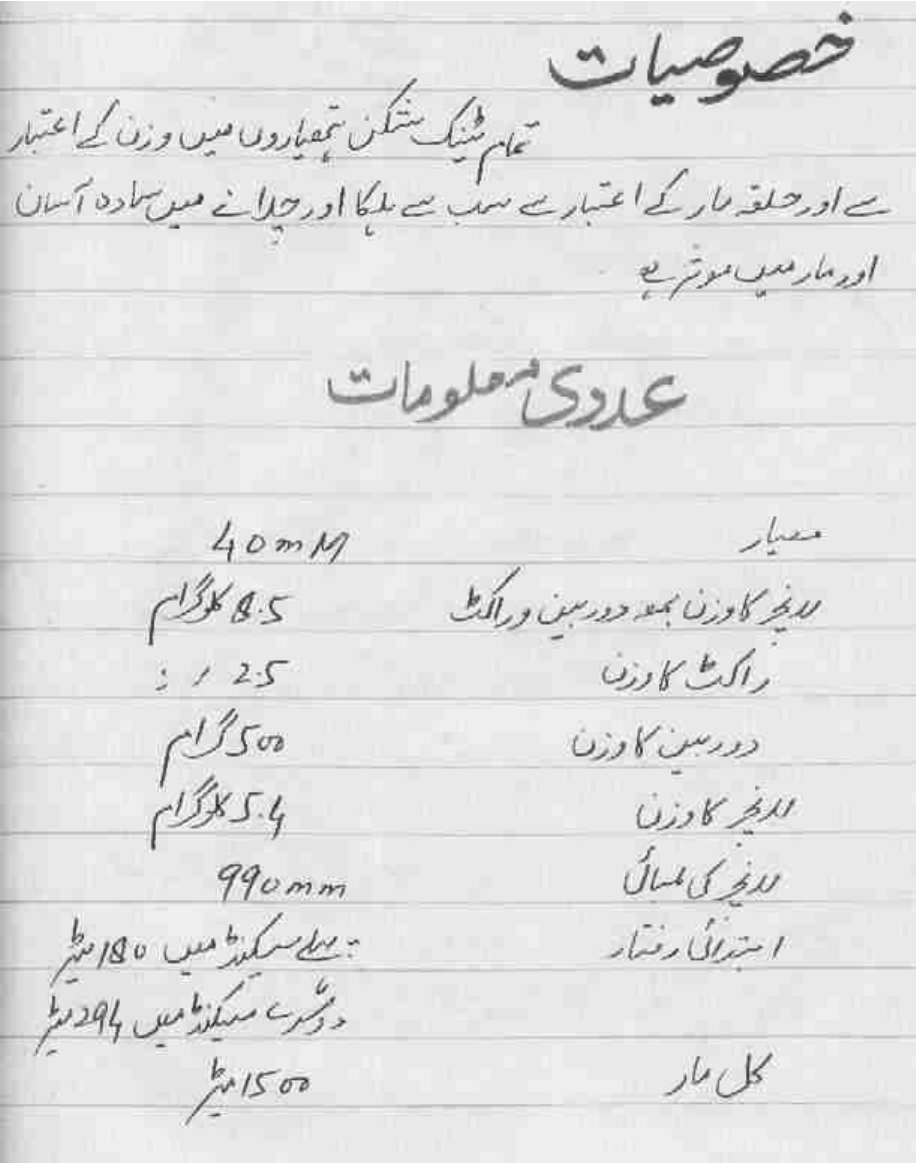 خصوصیات
تمام ٹینک شکن ہتھیاروں میں وزن کے اعتبار
سے اور حلقہ مار کے اعتبار سے سب سے ہلکا اور چلانے میں سادہ آسان
اور مار میں موثر ہے
عددی معلومات
معیار 40mM
لانچر کا وزن بمعہ دوربین و راکٹ 8.5 کلوگرام
راکٹ کا وزن 2.5 / :
دوربین کا وزن 500 گرام
لانچر کا وزن 5.4 کلوگرام
لانچر کی لمبائی 990mm
ابتدائی رفتار پہلے سیکنڈ میں 180 میٹر
دوسرے سیکنڈ میں 294 میٹر
کل مار 1500 میٹر